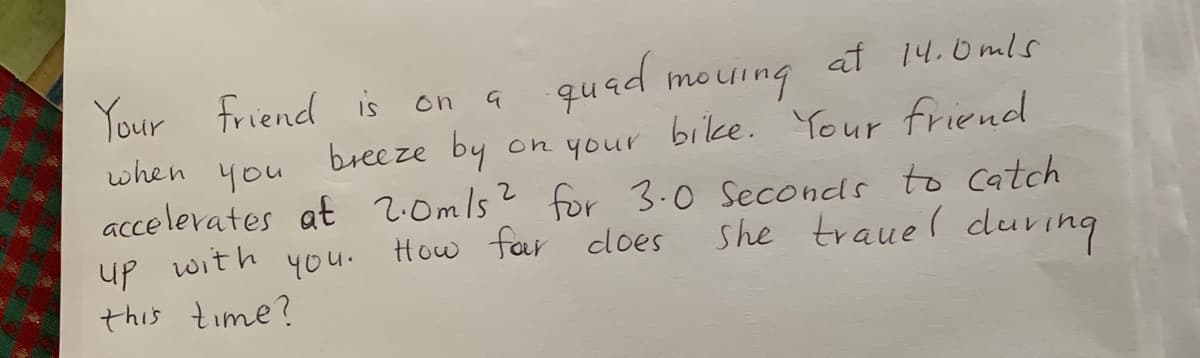 Your friend is on a quad moving at 14.0m/s
when you breeze by on your bike. Your friend
accelerates at 2.0m/s² for 3.0 Seconds to catch
up with you. How far does she travel during
this time?